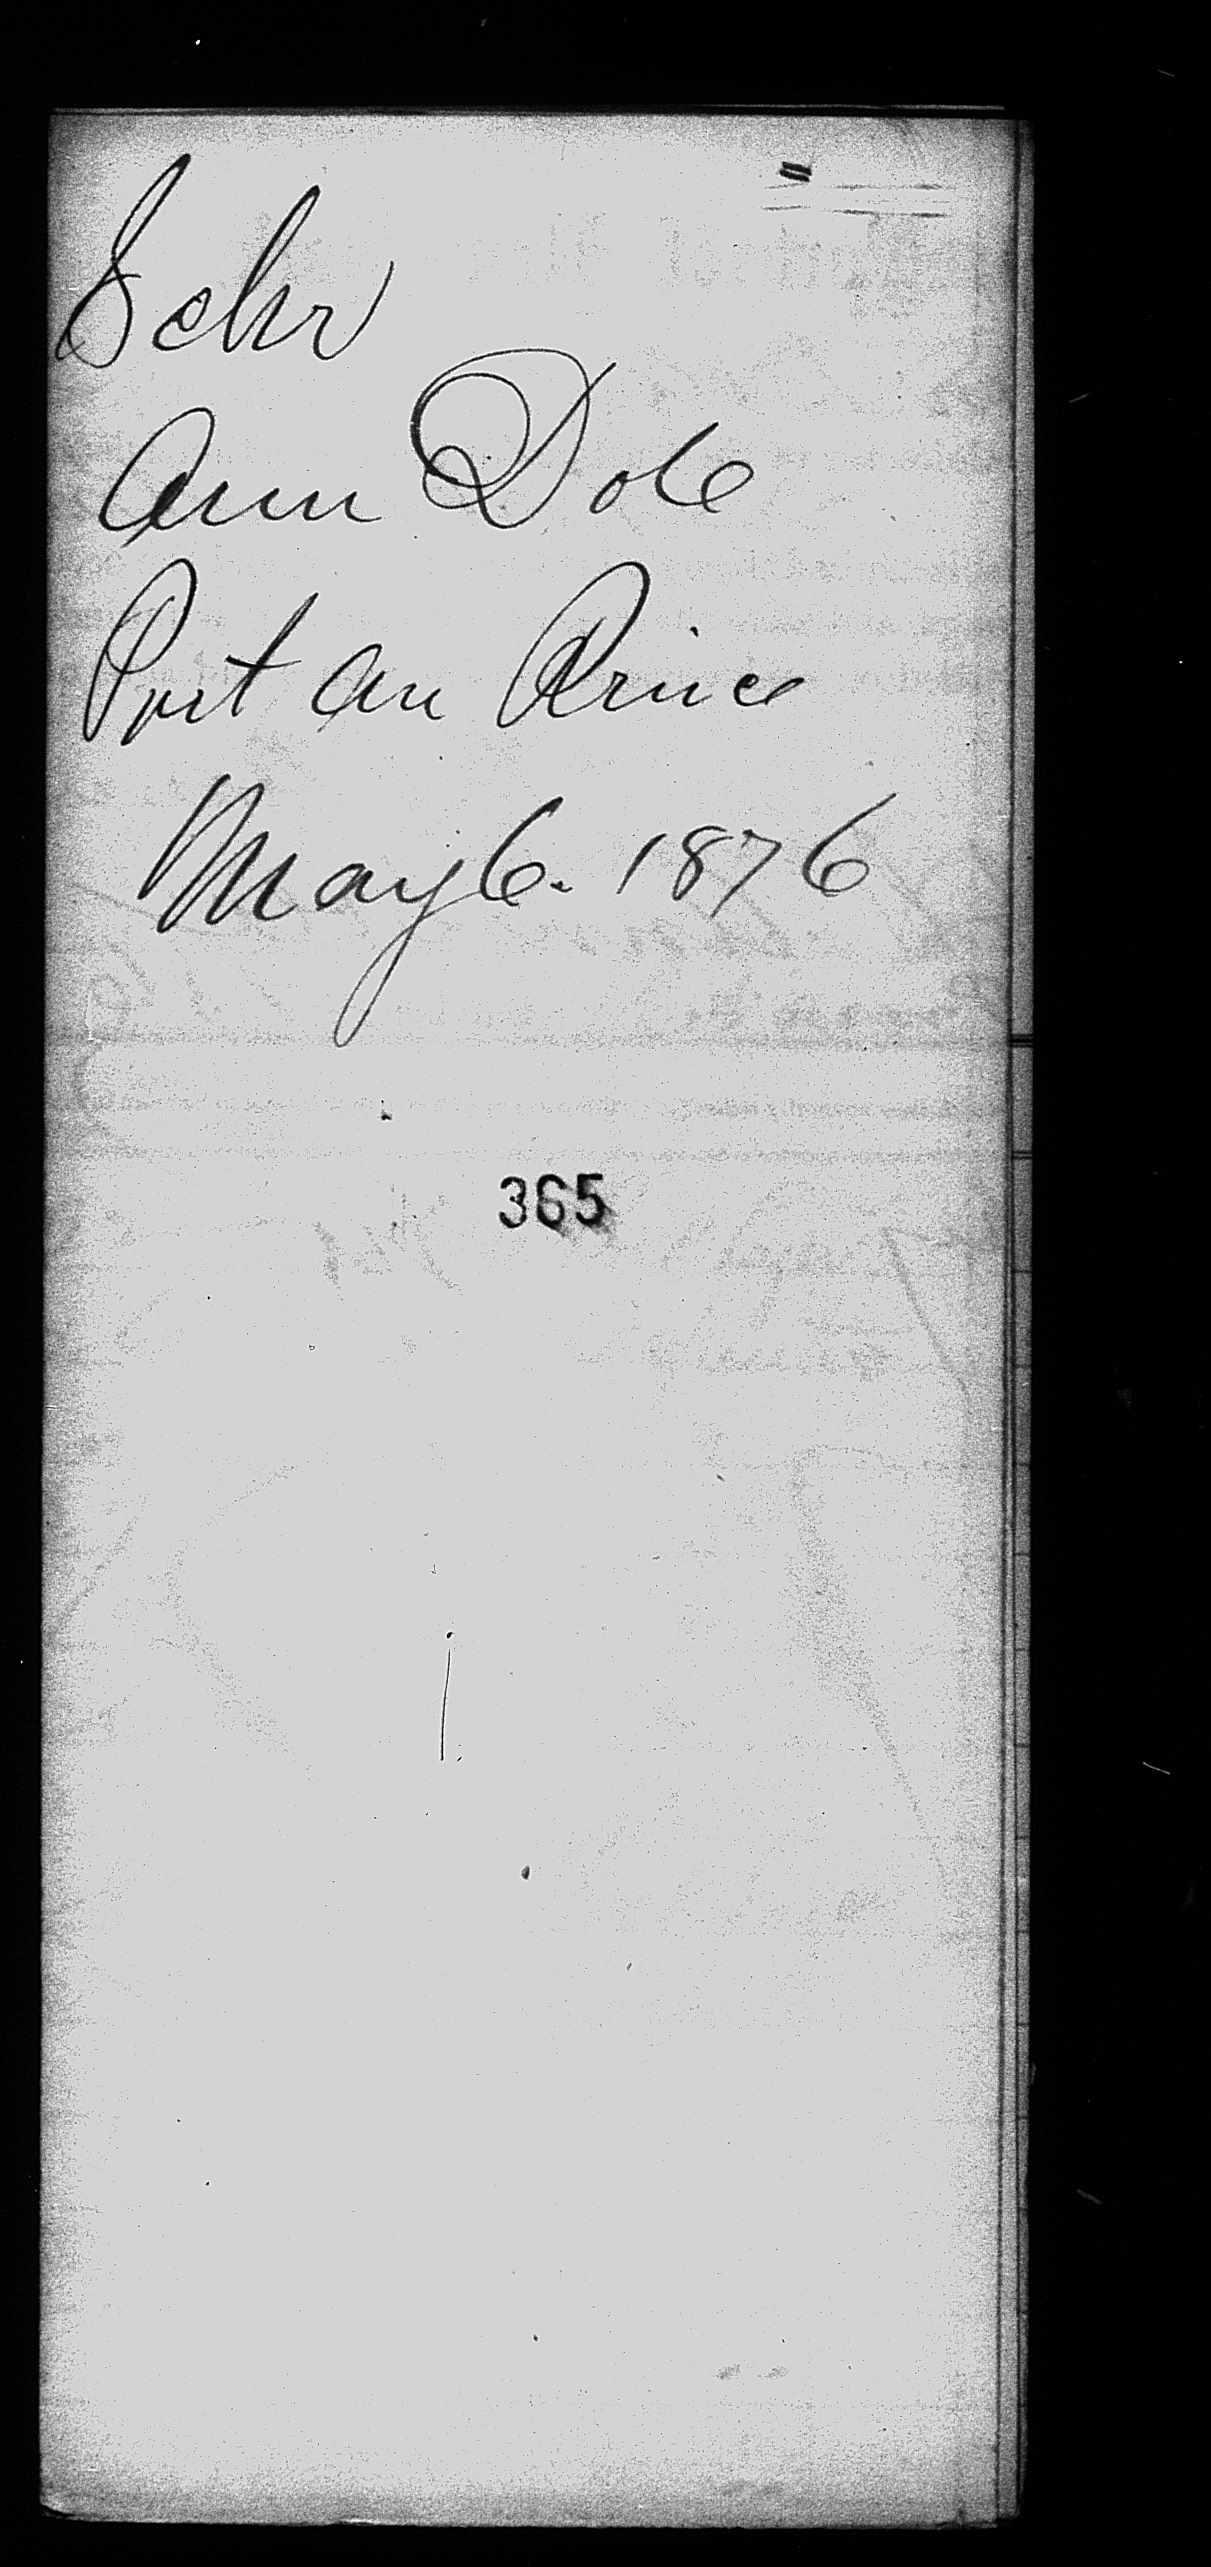 Schr
Ann Dole
Port au Prince
May 6. 1876
365